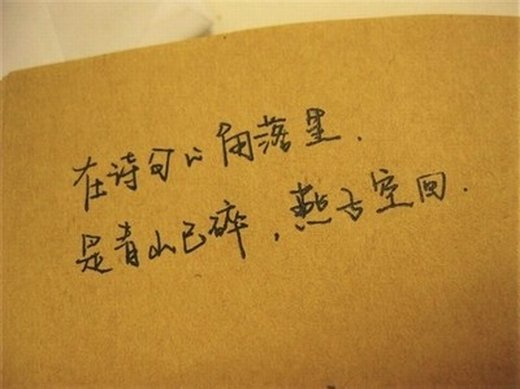 在诗句的角落里.
是青山已碎，燕子空回.